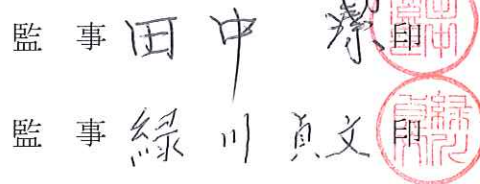 監 事 田 中 潔 印
監 事 緑 川 貞 文 印